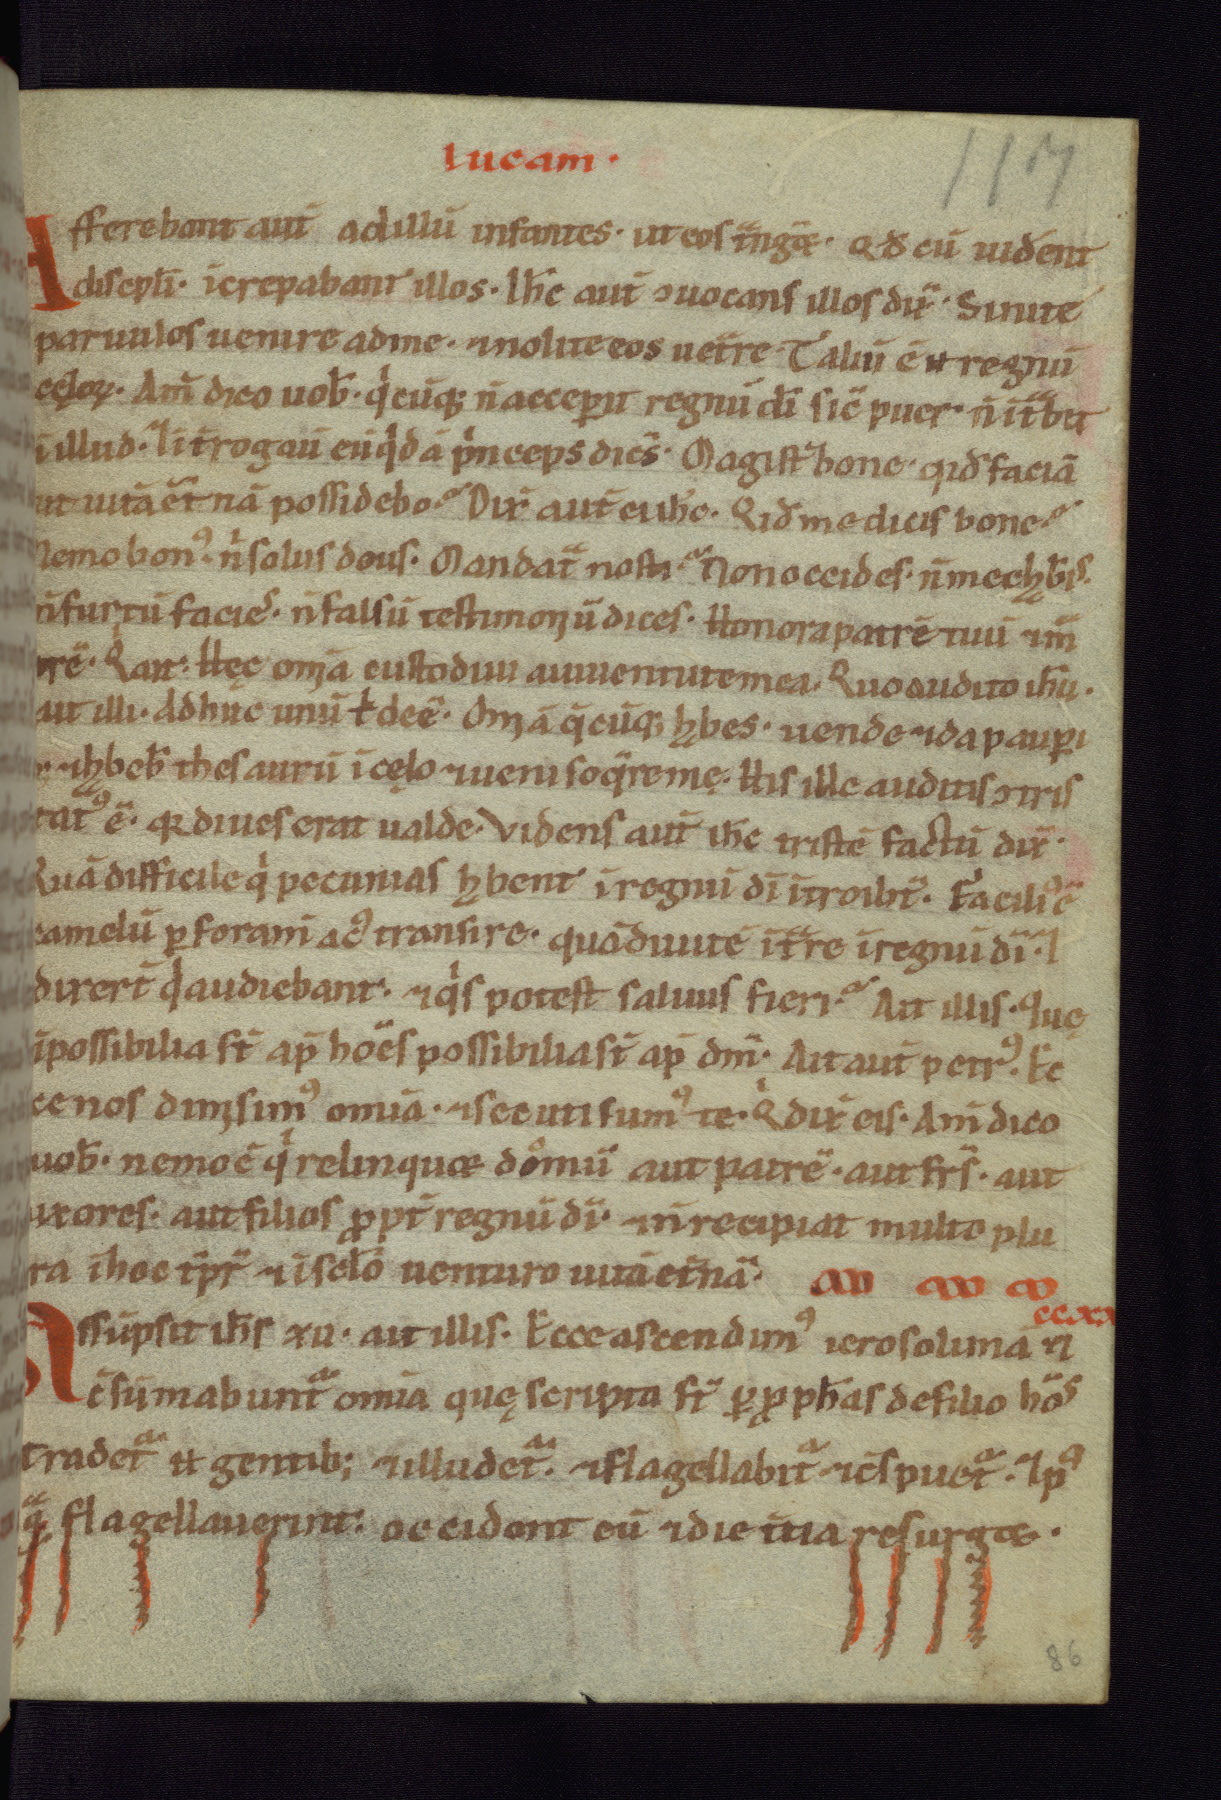 lucam·
117
Afferebant aut̄ ad illū infantes· ut eos tāngæ· qđ cū uid̄ent
discipl̄i· īcrepabant illos· Ih̄c aut̄ ɔuocans illos dix̄· Sinite
paruulos uenire ad me· ⁊ nolite eos uet̄re· Taliū ē ⁊ regnū
cęloꝝ· Am̄ dico uob̄· qͥcūq; n̄ acceperit regnū dī sic̄ puer· n̄ it̄bit
ī illud· It̄rogau eū qͥdā pͥnceps dic̄s· Magist̄ bone· qid faciā
ut uitā et̄nā possidebo· Dix̄ aut̄ ei ih̄c· Qid me dicis bone·
Nemo bonꝰ· nͥ solus deus· Mandat̄ nosti· Non occides· n̄ mechb̄is·
n̄ furtū facies· n̄ falsū testimoniū dices· Honora patrē tuū ⁊ m̄
trē· Qͥ ait· Hęc om̄ia custodiui a iuuentute mea· Quo audito ih̄u·
ait illi· Adhuc unū t̄ deē· Om̄ia q̄cūq; hbes· uende ⁊ da paupi
⁊ hbeb̄ thesaurū ī cęlo ⁊ ueni soq̄re me· His ille auditis ɔtris
tatꝰ ē· qꝛ diues erat ualde· Videns aut̄ ih̄c tristē factū dix̄·
Quā difficile qͥ pecunias hbent ī regnū dī ītroibt̄· Faciliꝰ ē
camelū ꝑ foram̄ acꝰ transire· quā diuitē it̄re ī regnū dī· I
dixert̄ qͥ audiebant· ⁊ qͥs potest saluus fieri· Ait illis· Quę
īpossibilia st̄ ap̄ hōes possibilia st̄ ap̄ dm̄· Ait aut̄ petrꝰ· Ec
ce nos dimisimꝰ omia· ⁊ secuti sumꝰ te· Qͥ dix̄ eis· Am̄ dico
uob̄· nemo ē qͥ relinquæ domū aut patrē· aut fr̄s· aut
uxores· aut filios ꝓpt̄ regnū dī· ⁊ n̄ recipiat multo plu
ra ī hoc tp̄r̄ ⁊ ī sclō uenturo uitā et̄nā·
ccxx
Assūpsit ih̄s xii· ait illis· Ecce ascendimꝰ ierosolimā ⁊
c̄sūmabunt̄ omia quę scripta st̄ ꝑ ꝓphas de filio hōs
Tradet̄ ⁊ gentib; ⁊ illudet̄· ⁊ flagellabit̄ ⁊ c̄spuet̄· Ip̄ꝰ
q̄ flagellauerint· occident eū ⁊ die t̄tia resurgæ·
86